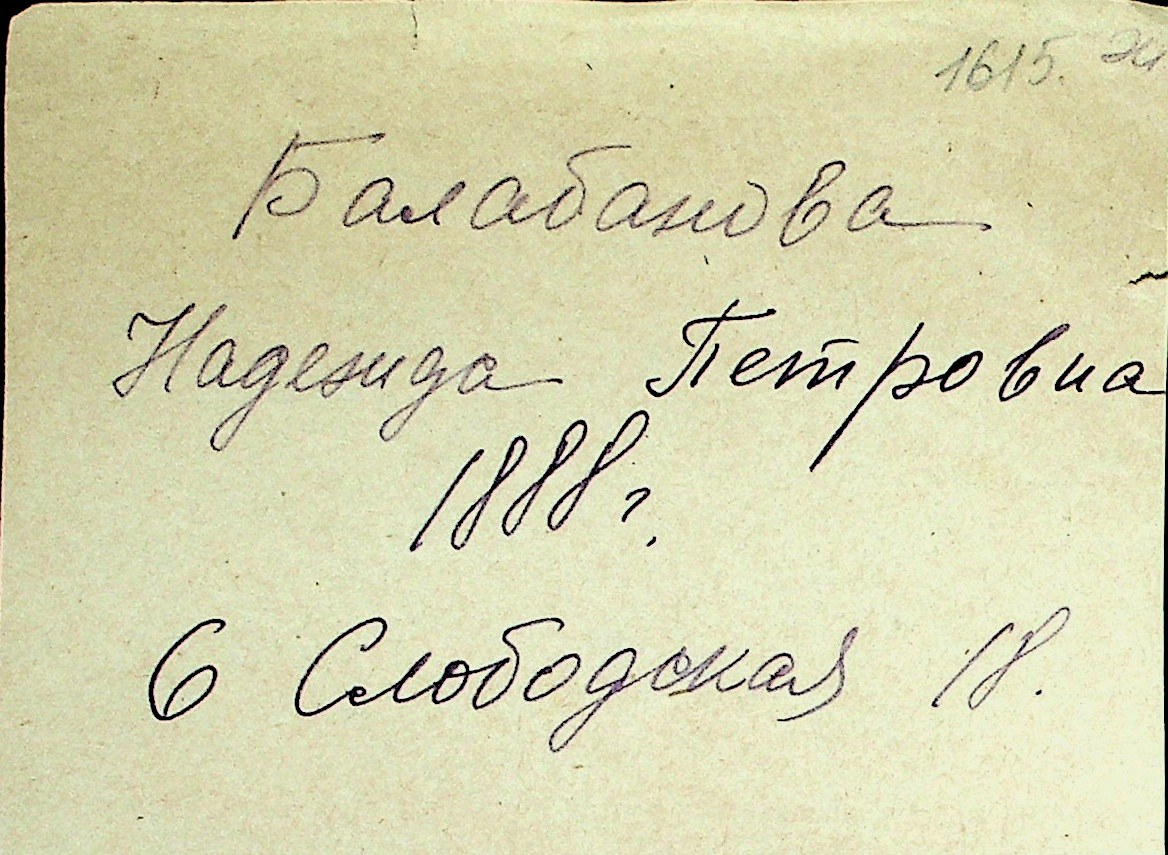 1615.
Балабанова
Надежда Петровна
1888 г.
6 Слободская 18.